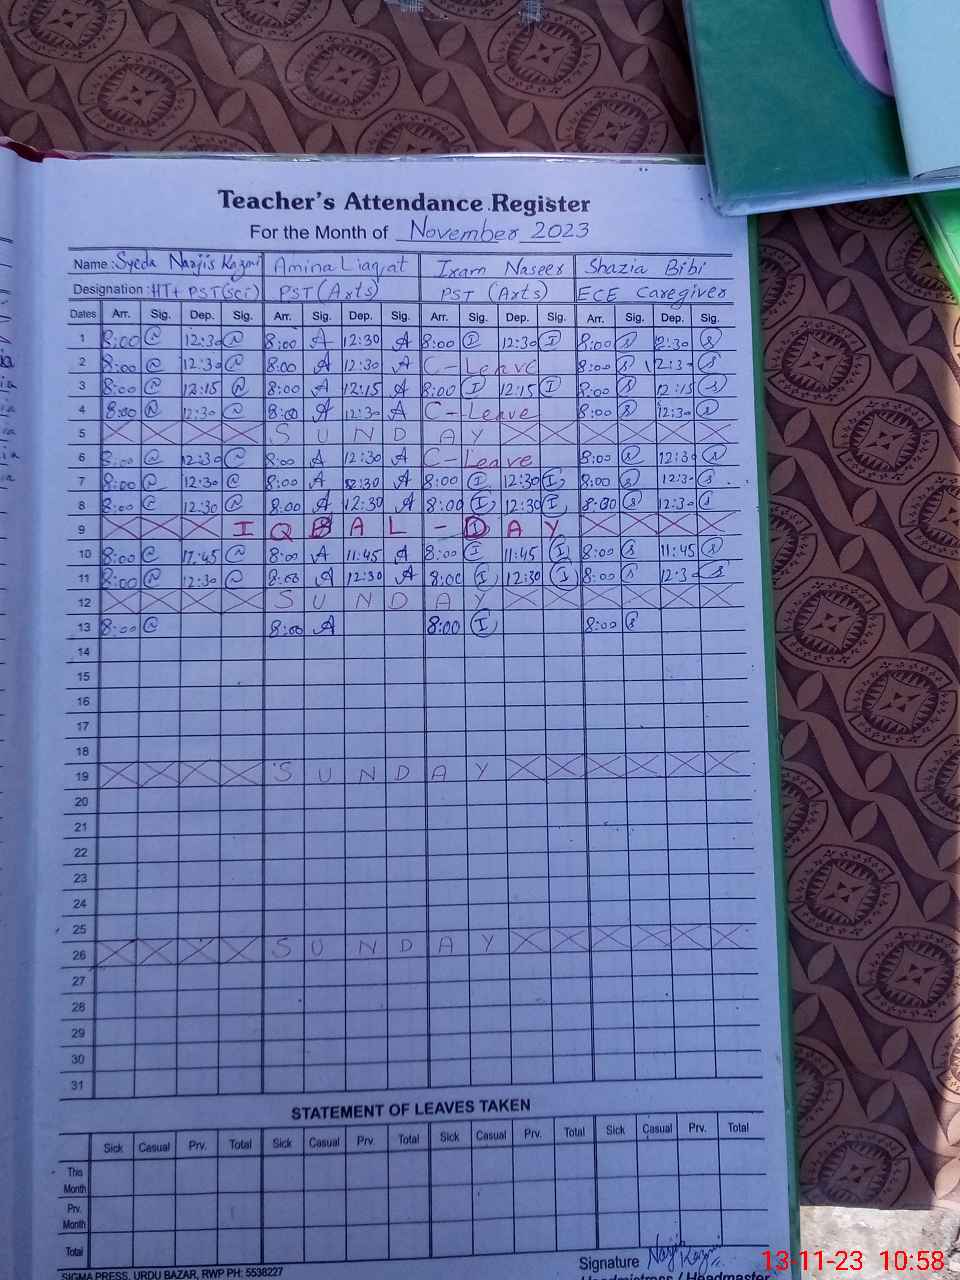 Teacher's Attendance Register
For the Month of November 2023
Name: Syeda Narjis Kazmi Amina Liaqat Iram Naseer Shazia Bibi
Designation: HT+ PST(Sci) PST(Arts) PST (Arts) ECE Caregiver
Dates Arr. Sig. Dep. Sig. Arr. Sig. Dep. Sig. Arr. Sig. Dep. Sig. Arr. Sig. Dep. Sig.
1 8:00 12:30 8:00 A 12:30 A 8:00 I 12:30 I 8:00 s 12:30 s
2 8:00 12:30 8:00 A 12:30 A C-Leave 8:00 s 12:30 s
3 8:00 12:15 8:00 A 12:15 A 8:00 I 12:15 I 8:00 s 12:15 s
4 8:00 12:30 8:00 A 12:30 A C-Leave 8:00 s 12:30 s
5 SUNDAY
6 8:00 12:30 8:00 A 12:30 A C-Leave 8:00 s 12:30 s
7 8:00 12:30 8:00 A 12:30 A 8:00 I 12:30 I 8:00 s 12:30 s
8 8:00 12:30 8:00 A 12:30 A 8:00 I 12:30 I 8:00 s 12:30 s
9 IQBAL-DAY
10 8:00 8:00 A 11:45 A 8:00 I 11:45 I 8:00 s 11:45 s
11 8:00 12:30 8:00 A 12:30 A 8:00 I 12:30 I 8:00 s 12:30 s
12 SUNDAY
13 8:00 8:00 A 8:00 I 8:00 s
14
15
16
17
18
19 SUNDAY
20
21
22
23
24
25
26 SUNDAY
27
28
29
30
31
STATEMENT OF LEAVES TAKEN
Sick Casual Prv. Total Sick Casual Prv. Total Sick Casual Prv. Total Sick Casual Prv. Total
This
Month
Prv.
Month
Total
Signature Narjis Kazmi
Headmistress / Headmaster
SIGMA PRESS, URDU BAZAR, RWP PH: 5538227
13-11-23 10:58